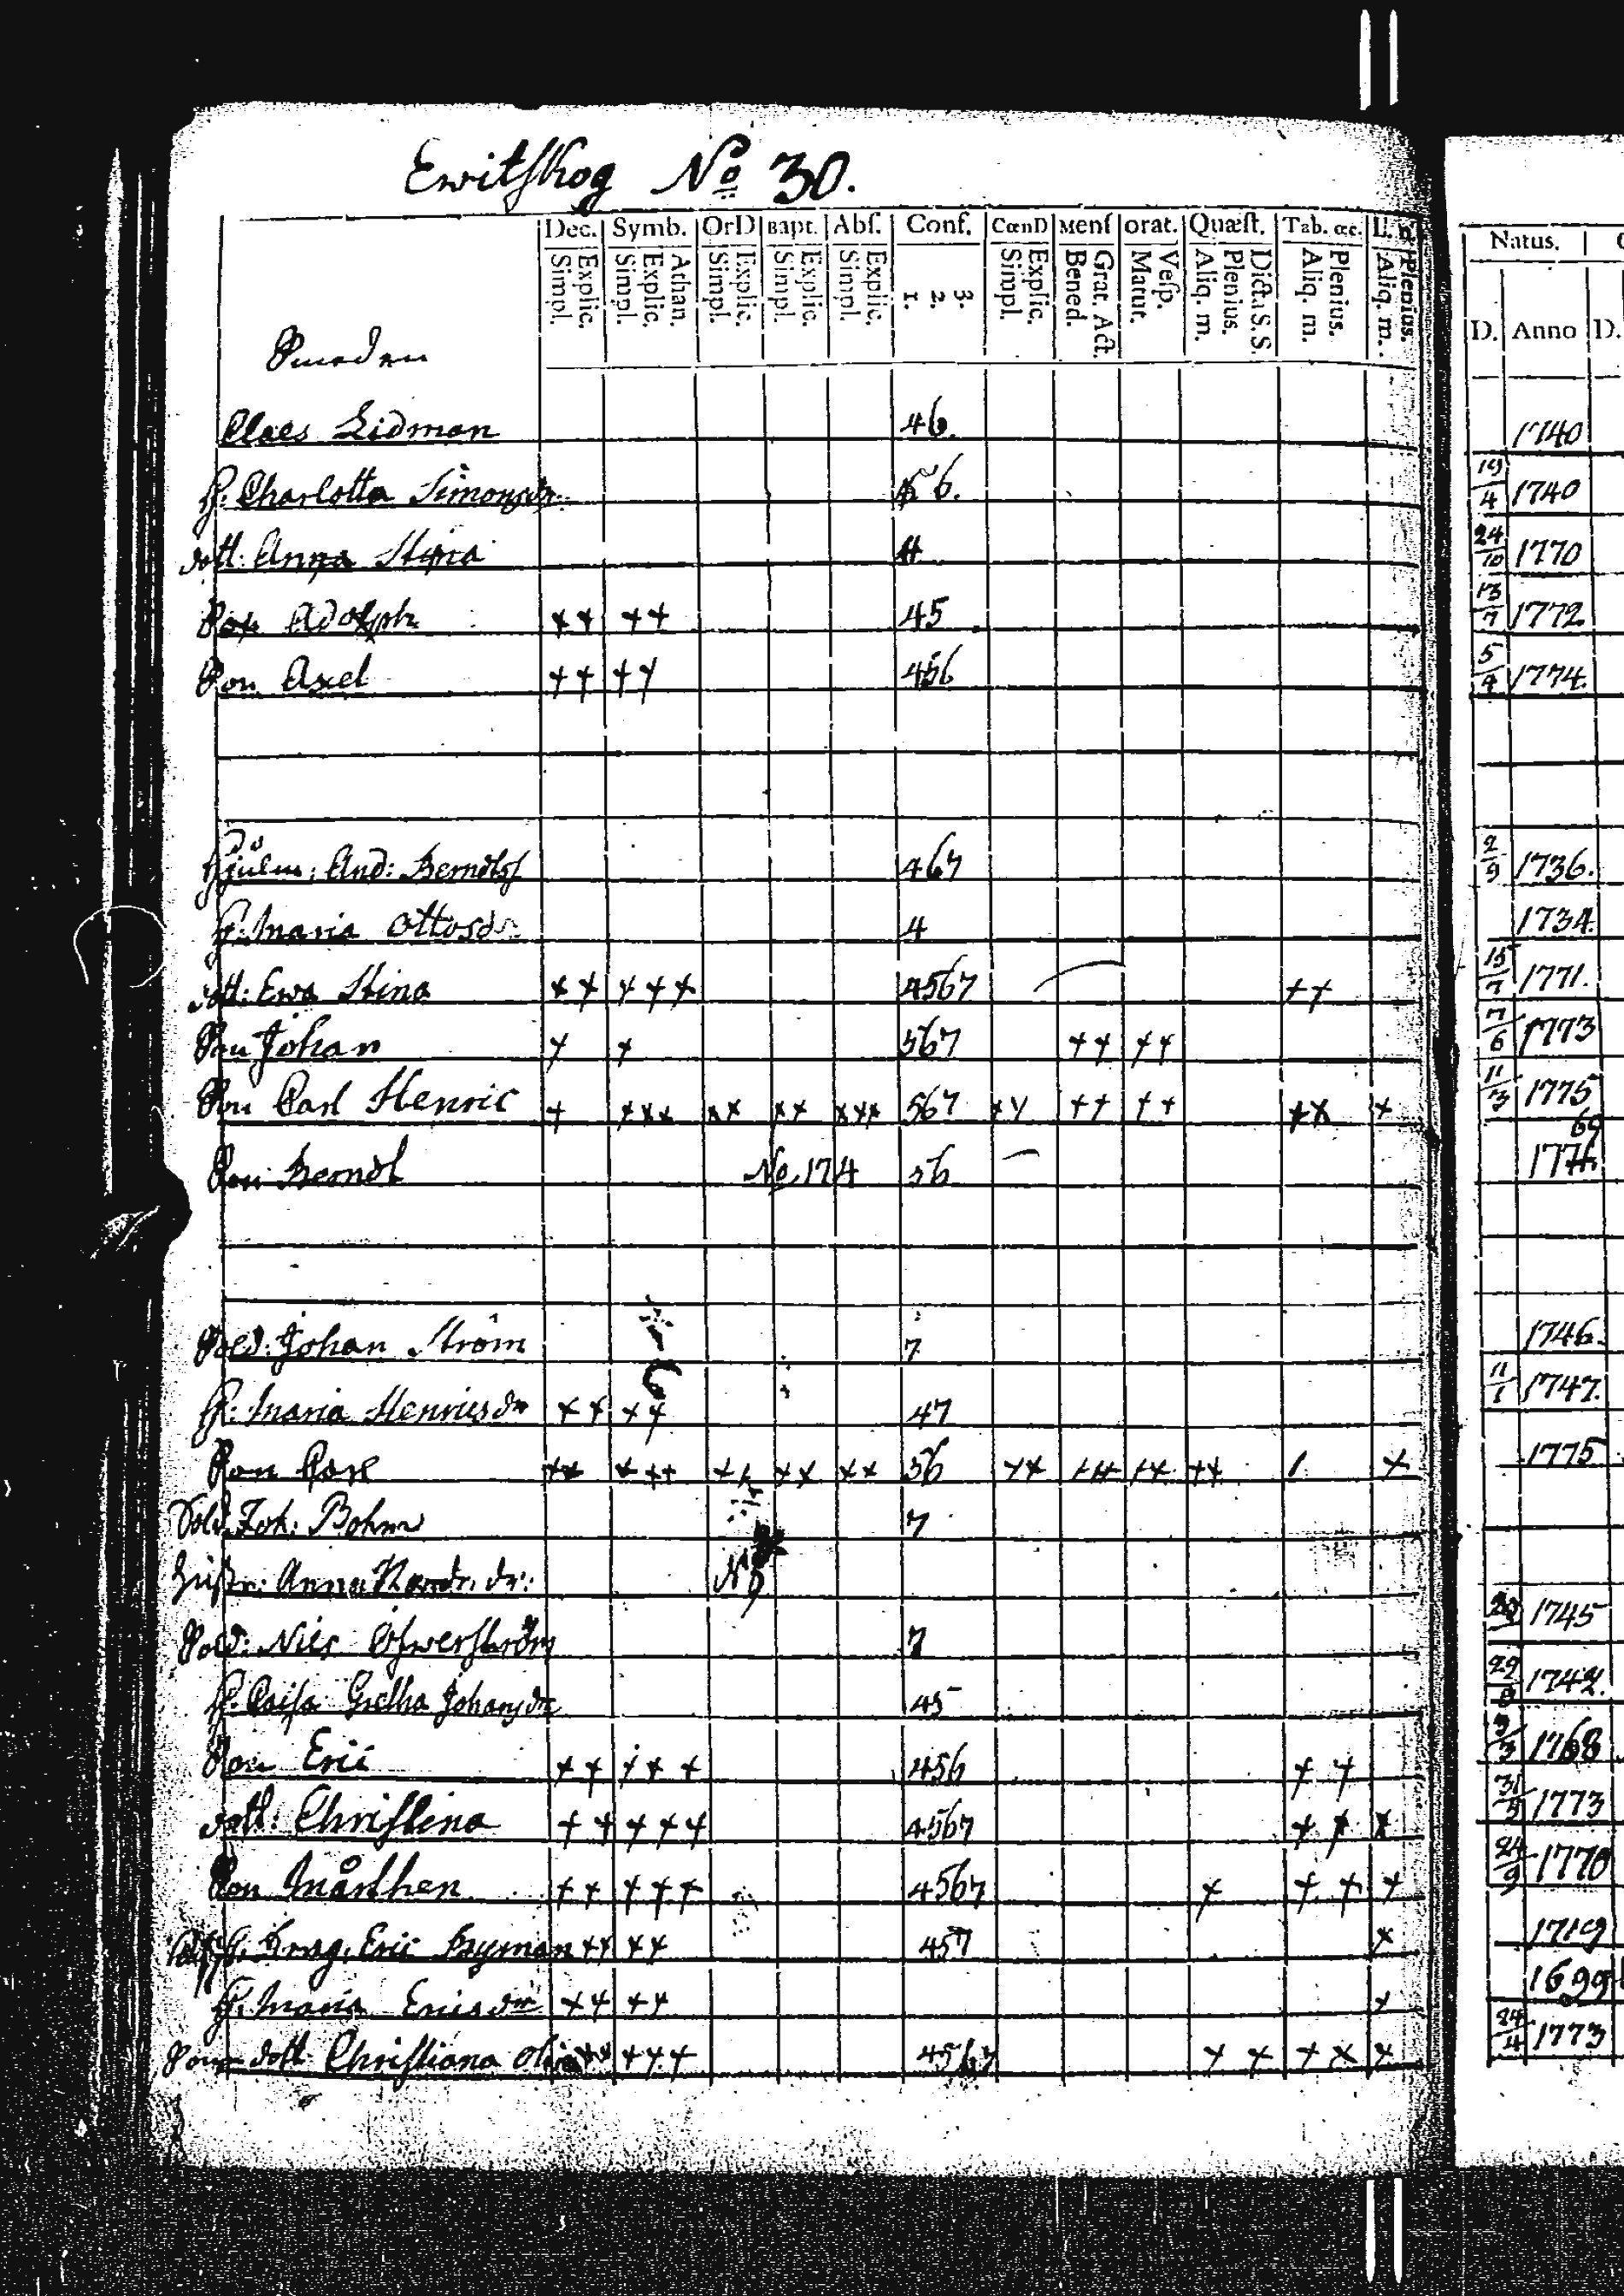 Ewitskog No 30.
Dec. Symb. OrD Bapt. Abſ. Conf. CœnD Menſ orat. Quæſt. Tab. œc. Natus.
Explic. Simpl. Athan. Explic. Simpl. Explic. Simpl. Explic. Simpl. Explic. Simpl. 3. 2. 1. Explic. Simpl. Grat. Act. Bened. Veſp. Matut. Dict. S. S. Plenius. Aliq. m. Plenius. Aliq. m. Plenius. Aliq. m. D. Anno D.
Claes Lidman 46. 1740
H. Charlotta Simonsdr. 56. 19/4 1740
dott: Anna Stina 4 24/10 1770
Son Adolph ++ ++ 45 13/7 1772
Son Axel ++ ++ 456 5/4 1774.
And: Berndtss 467 2/9 1736.
H. Maria Ottosdr 4 1734.
dott: Ewa Stina ++ +++ 4567 ++ 15/7 1771.
Son Johan + + 567 ++ ++ 7/6 1773
Son Carl Henric + +++ ++ ++ +++ 567 ++ ++ ++ ++ + 11/3 1775
Son Berndt No 174 56 69
Sold: Johan Ström 7 1746.
H: Maria Henricsdr ++ ++ 47 11/1 1747.
Son ++ +++ ++ ++ ++ 56 ++ ++ ++ ++ + 1775
Sold. Joh: Bohm 7
Hustr: Anna No 1745
Sold: Nils 7 29/8 1742.
H. Caisa Gretha Johansdr 45
Son Eric ++ +++ 456 ++ 9/3 1768
dott: Christina ++ +++ 4567 ++ + 31/5 1773
Son Mårthen ++ +++ 4567 + ++ + 24/9 1770
Drag. Eric Ryman ++ ++ 457 + 1719
H. Maria Ericsdr ++ ++ + 1699
dott. Christiana ++ +++ 4567 ++ ++ + 24/4 1773